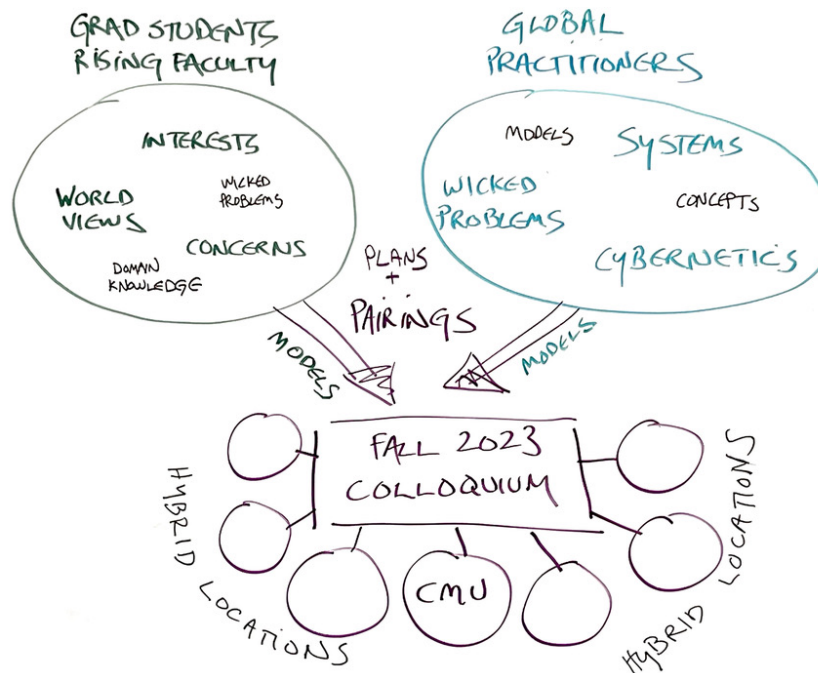 GRAD STUDENTS
RISING FACULTY
GLOBAL
PRACTITIONERS
INTERESTS
WORLD
VIEWS
WICKED
PROBLEMS
CONCERNS
DOMAIN
KNOWLEDGE
MODELS
SYSTEMS
WICKED
PROBLEMS
CONCEPTS
CYBERNETICS
PLANS
+
PAIRINGS
MODELS
MODELS
FALL 2023
COLLOQUIUM
HYBRID LOCATIONS
CMU
HYBRID LOCATIONS